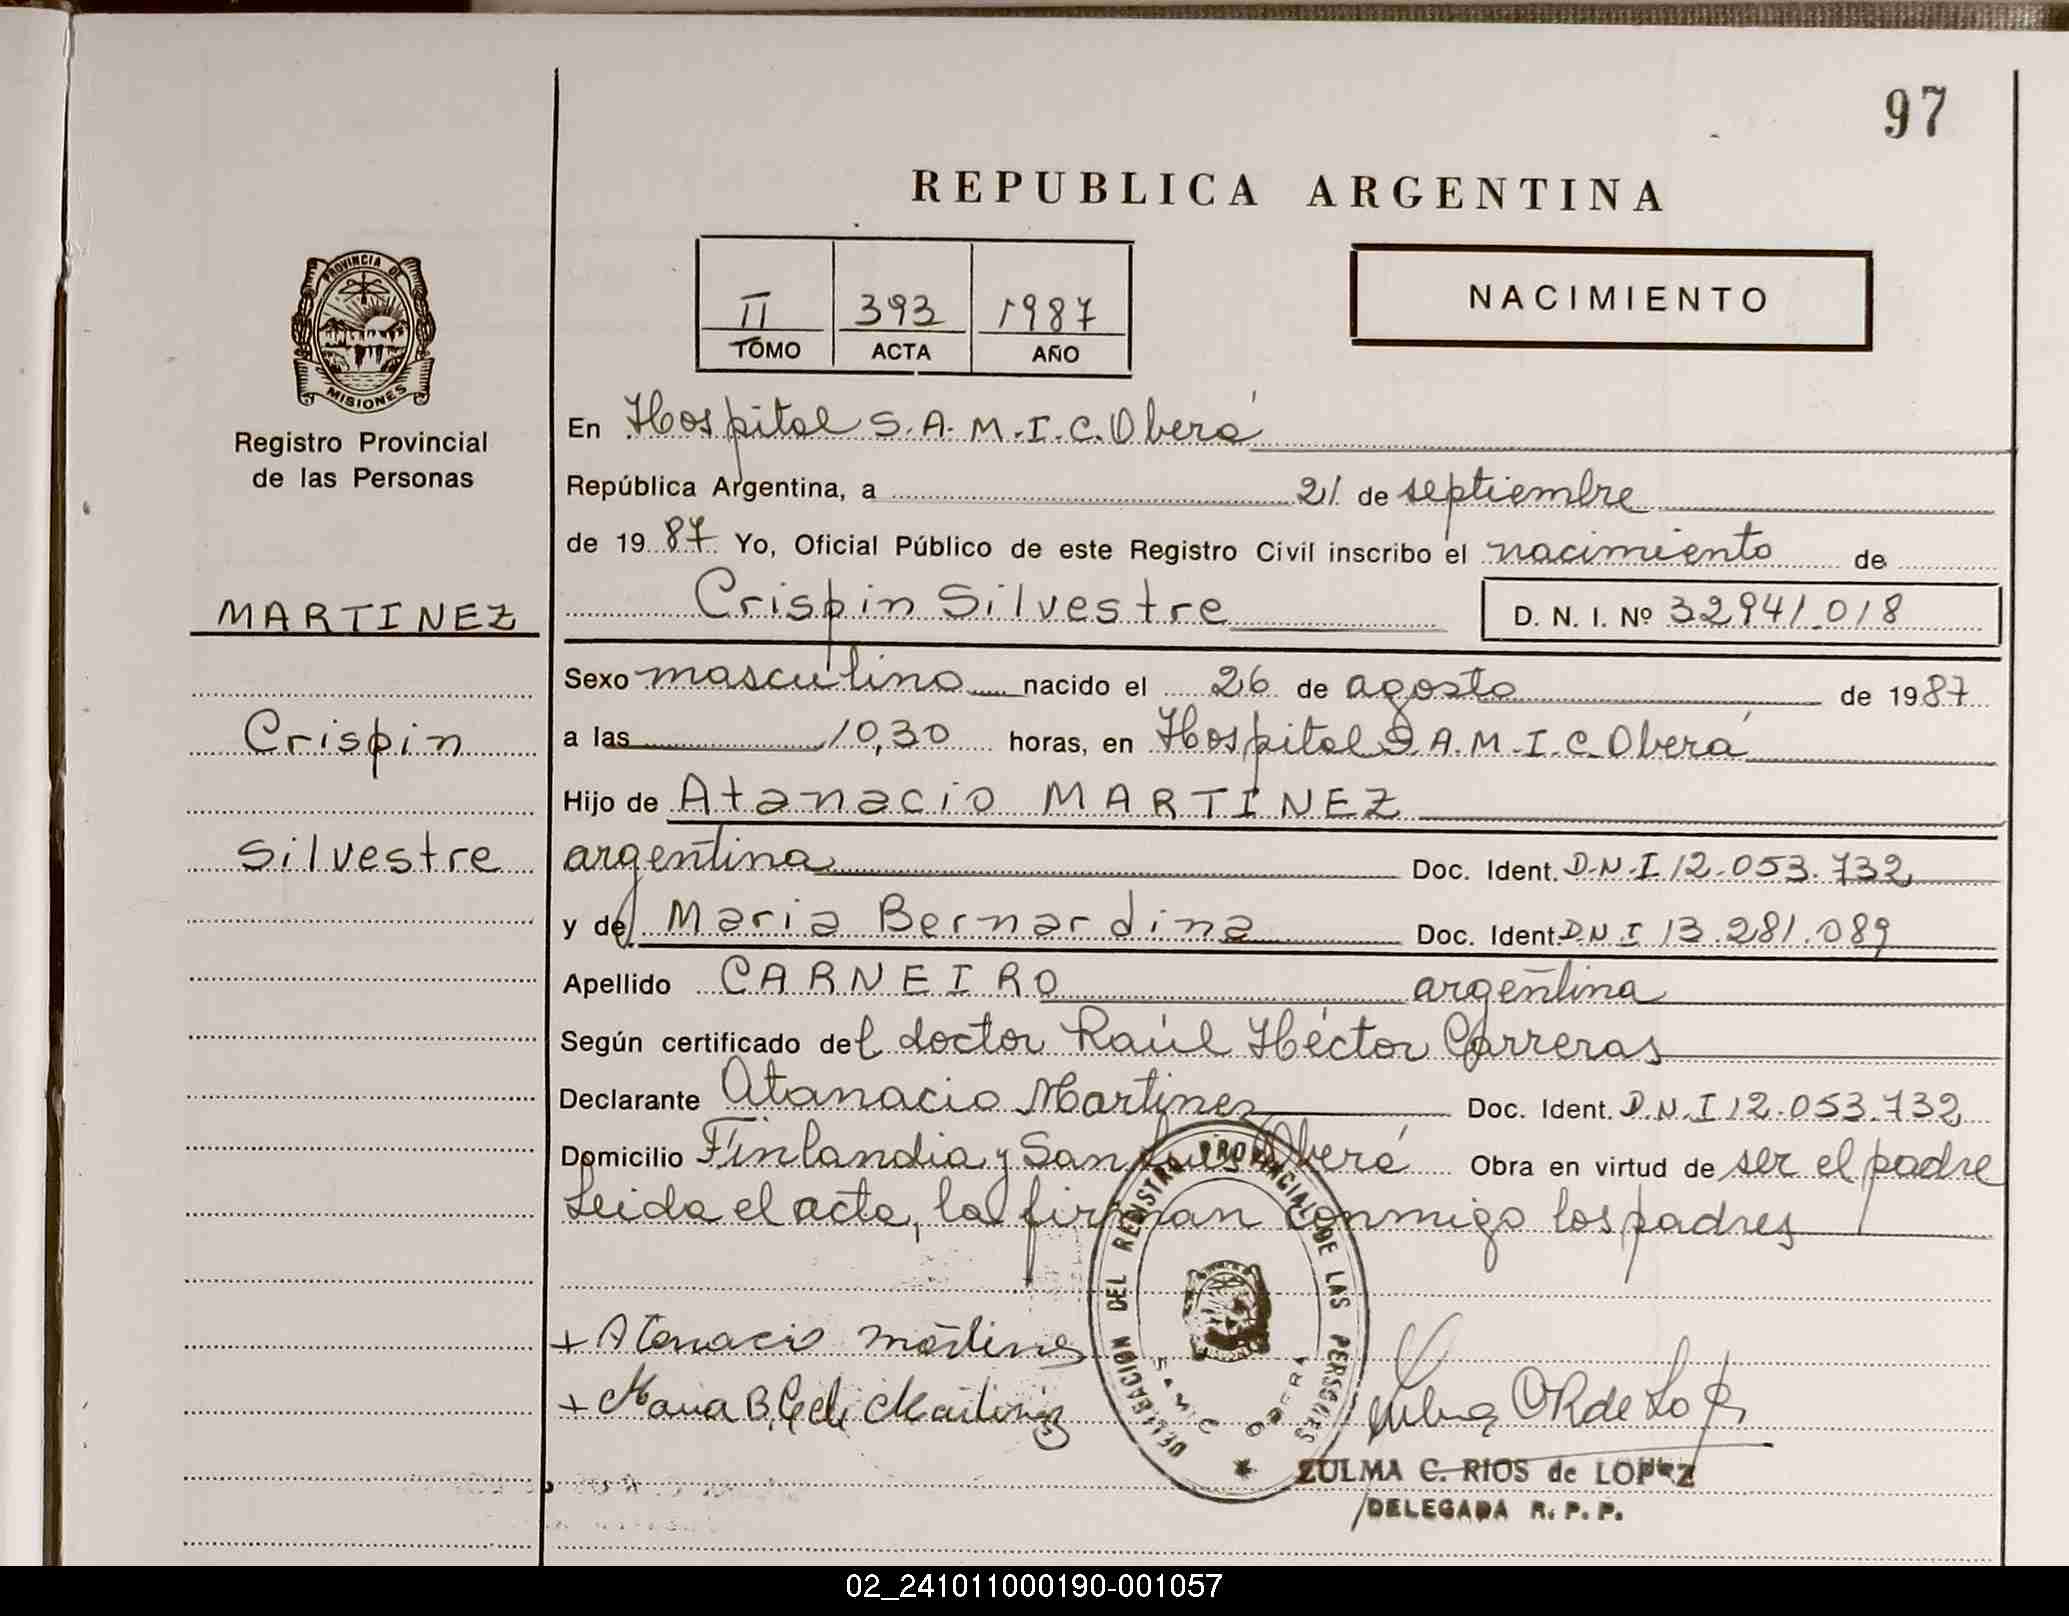 97
REPUBLICA ARGENTINA
II 393 1987
TOMO ACTA AÑO
NACIMIENTO
PROVINCIA DE
MISIONES
Registro Provincial
de las Personas
MARTINEZ
Crispin
Silvestre
En Hospital S.A.M.I.C. Oberá
República Argentina, a 21 de septiembre
de 1987 Yo, Oficial Público de este Registro Civil inscribo el nacimiento de
Crispin Silvestre D. N. I. Nº 32941.018
Sexo masculino nacido el 26 de agosto de 1987
a las 10,30 horas, en Hospital S.A.M.I.C. Oberá
Hijo de Atanacio MARTINEZ
argentina Doc. Ident. D.N.I 12.053.732
y de Maria Bernardina Doc. Ident. D.N.I 13.281.089
Apellido CARNEIRO argentina
Según certificado del doctor Raúl Héctor Carreras
Declarante Atanacio Martinez Doc. Ident. D.N.I 12.053.732
Domicilio Finlandia y San Luis Oberá Obra en virtud de ser el padre
Leida el acta, la firman conmigo los padres
DELEGACIÓN DEL REGISTRO PROVINCIAL DE LAS PERSONES
SAMIC OBERA
+ Atanacio Martinez
+ Maria B. de Martinez
ZULMA C. RIOS de LOPEZ
DELEGADA R. P. P.
02_241011000190-001057